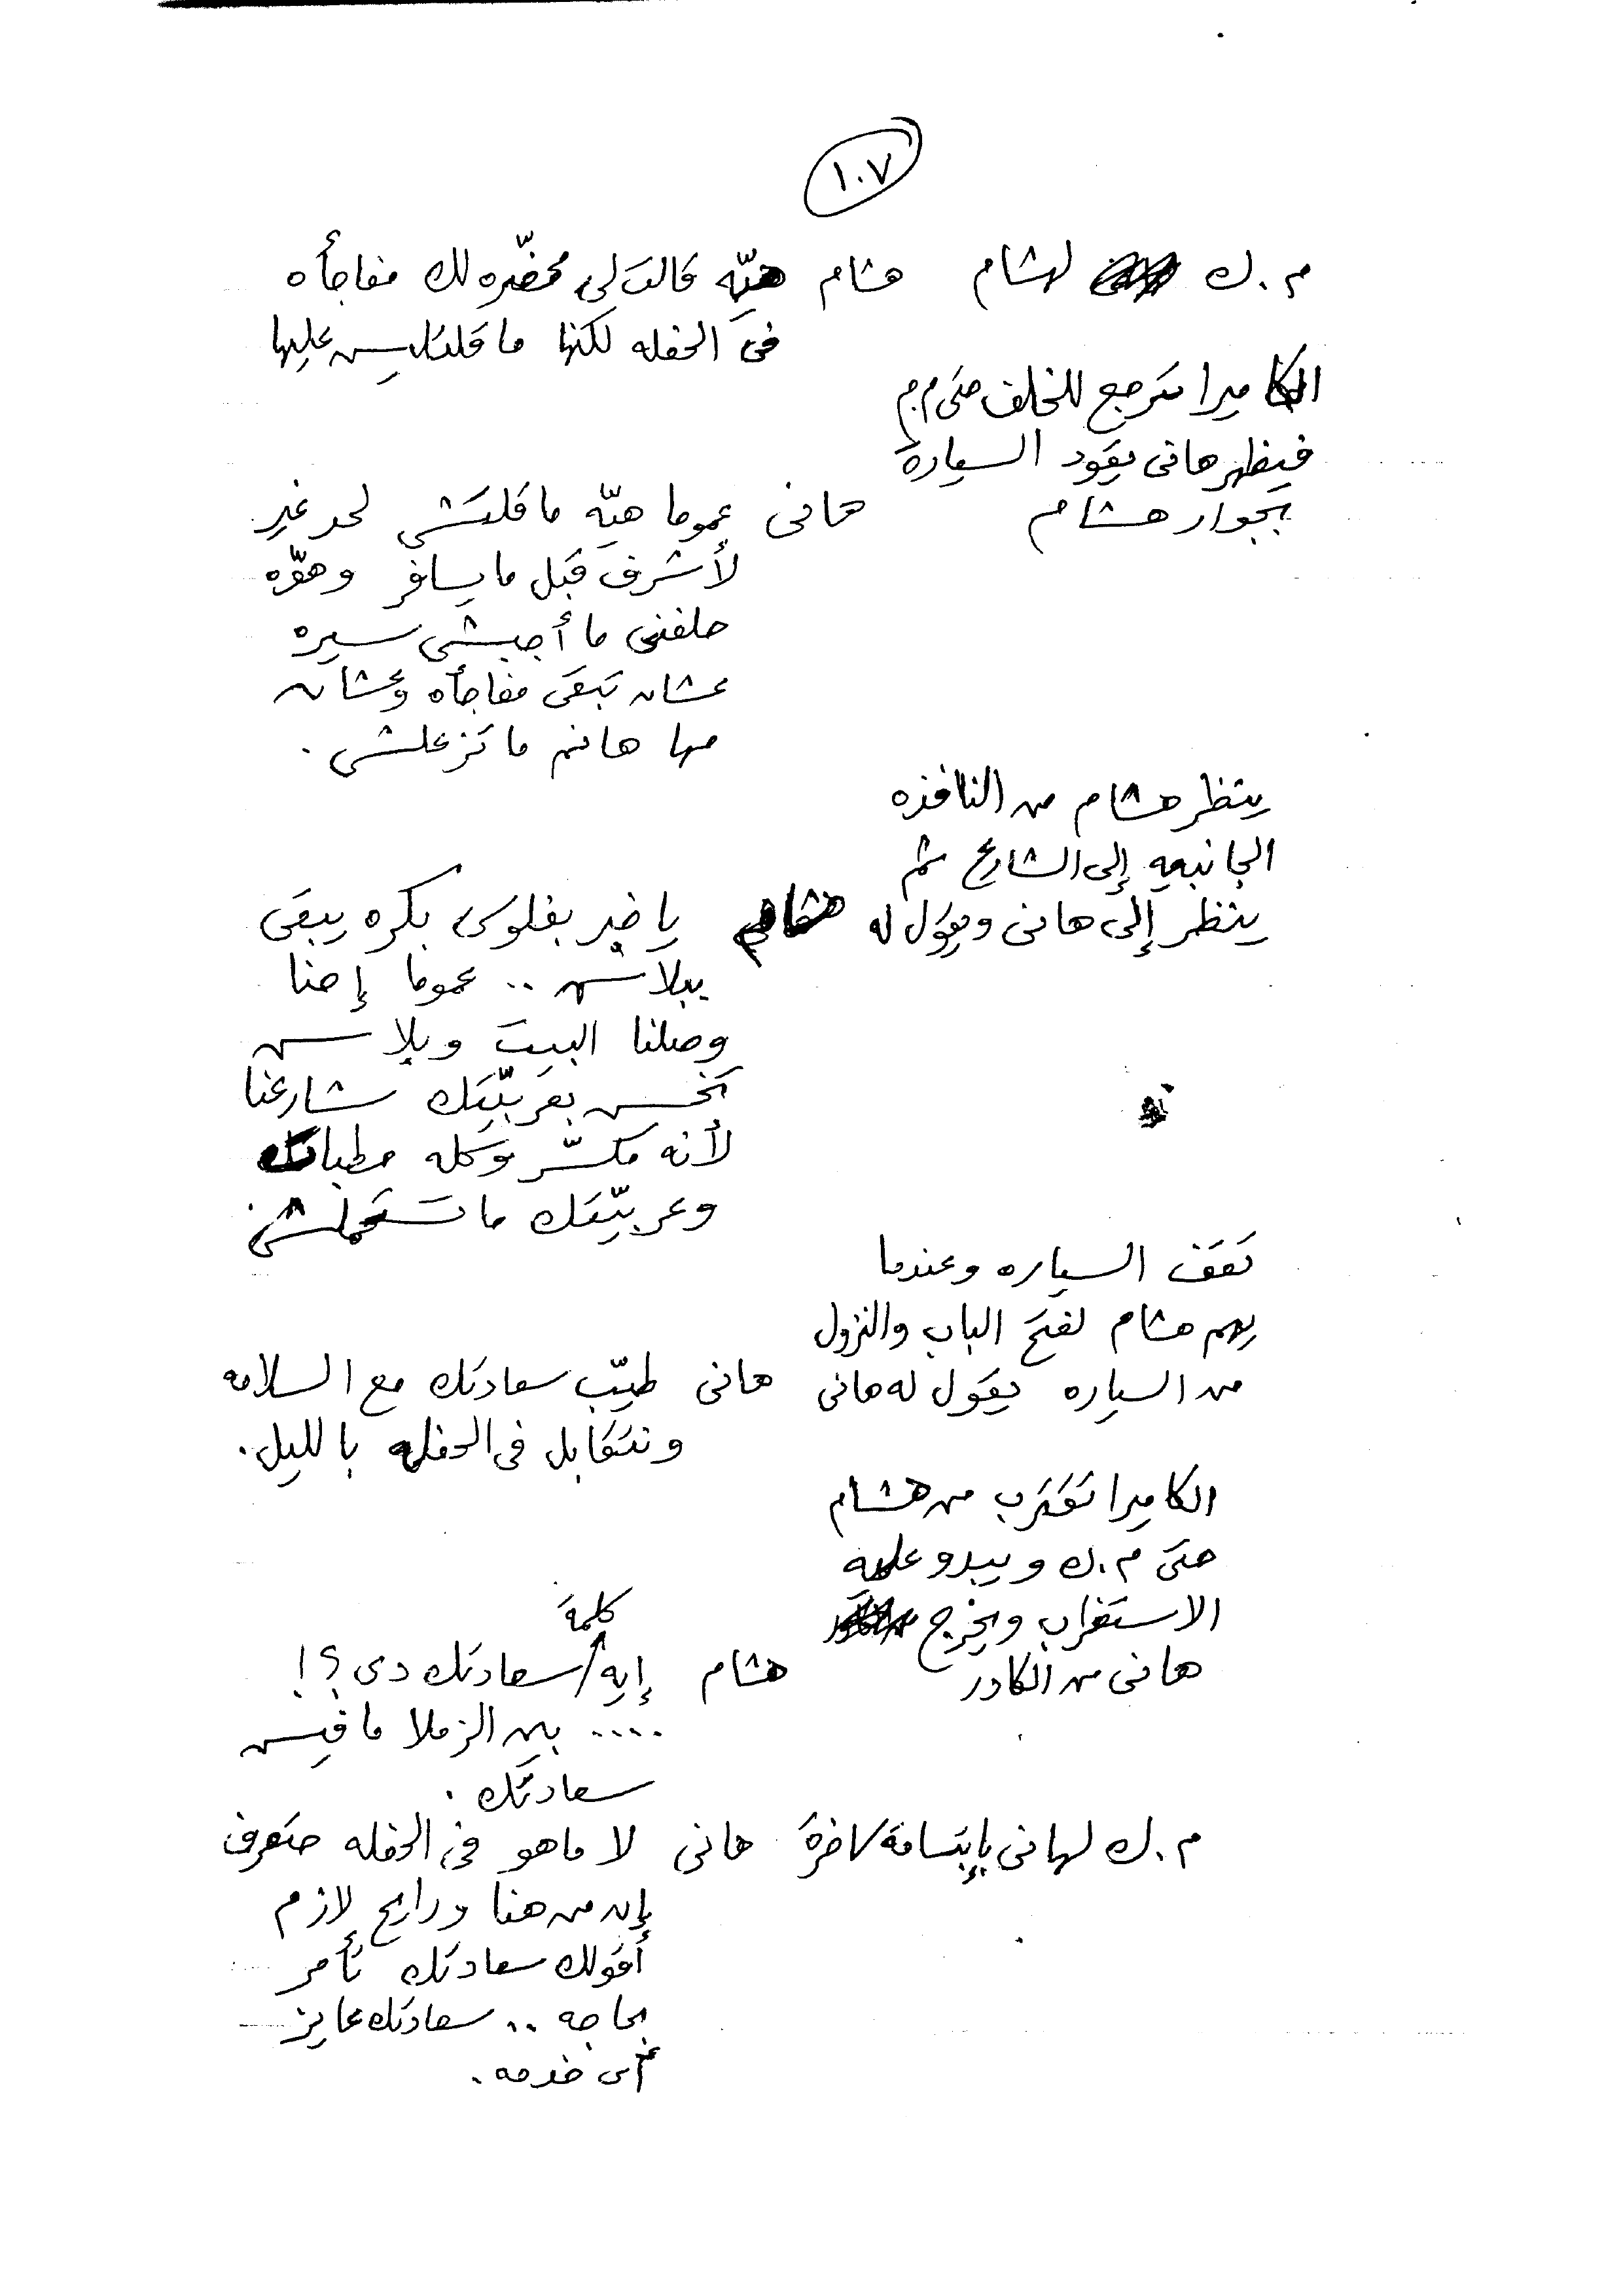 ١٠٧
م.ك لهشام هشام هيّه قالت لى محضّره لك مفاجأه
فى الحفله لكنها ما قلتليش عليها
الكاميرا ترجع للخلف حتى م.م
فيظهر هانى يقود السيارة
بجوار هشام هانى عموما هيّه ما قلتش لحد غير
لأشرف قبل ما يسافر وهوّه
حلفنى ما أجبش سيره
عشان تبقى مفاجأه وعشان
مها هانم ما تزعلش .
ينظر هشام من النافذه
الجانبيه إلى الشارع ثم
ينظر إلى هانى ويقول له هشام يا خبر بفلوس بكره يبقى
ببلاش .. عموما إحنا
وصلنا البيت وبلاش
تخش بعربيّتك شارعنا
لأنه مكسّر وكله مطبات
وعربيّتك ما تستحملش .
تقف السياره وعندما
يهم هشام لفتح الباب والنزول
من السياره يقول له هانى هانى طيّب سعادتك مع السلامه
ونتقابل فى الحفله بالليل .
الكاميرا تقترب من هشام
حتى م.ك ويبدو عليه
الاستغراب ويخرج
هانى من الكادر هشام إيه كلمة سعادتك دى ؟!
.... بين الزملا مافيش
سعادتك .
م.ك لهانى بإبتسامة ساخرة هانى لا ما هو فى الحفله حتعرف
إن من هنا ورايح لازم
أقولك سعادتك تأمر
بحاجه .. سعادتك عايز
أى خدمه .